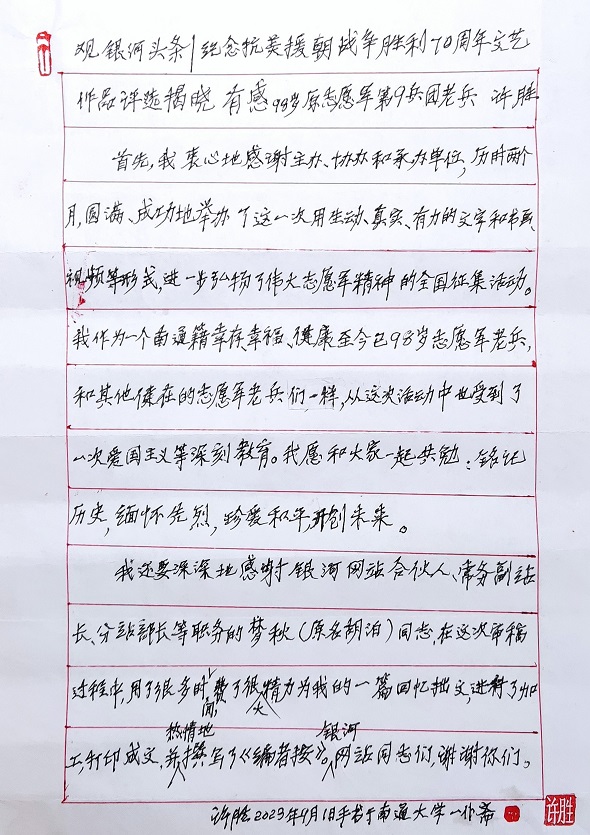 观银河头条|纪念抗美援朝战争胜利70周年文艺
作品评选揭晓 有感 98岁原志愿军第9兵团老兵 许胜
首先,我衷心地感谢主办、协办和承办单位,历时两个
月,圆满、成功地举办了这一次用生动、真实、有力的文字和书画
视频等形式,进一步弘扬了伟大志愿军精神的全国征集活动。
我作为一个南通籍幸存幸福、健康至今已98岁志愿军老兵,
和其他健在的志愿军老兵们一样,从这次活动中也受到了
一次爱国主义等深刻教育。我愿和大家一起共勉:铭记
历史,缅怀先烈,珍爱和平,开创未来。
我还要深深地感谢银河网站合伙人、常务副站
长、分站部长等职务的梦秋(原名胡泊)同志,在这次审稿
过程中,用了很多时间,费了很大精力为我的一篇回忆拙文,进行了加
工,打印成文,并热情地撰写了《编者按》。银河网站同志们,谢谢你们。
许胜2023年9月1日手书于南通大学一作斋
许胜